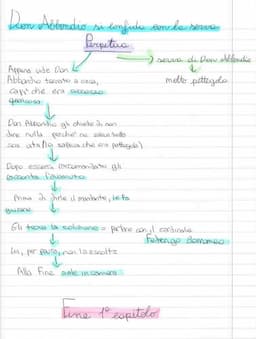 Don Abbondio si confida con la serva
Perpetua
serva di Don Abbondio
molto pettegola
Appena vide Don
Abbondio tornato a casa,
capì che era successo
qualcosa
Don Abbondio gli chiede di non
dire nulla perché ne
(lo sapeva che era pettegola)
Dopo essersi raccomandato gli
racconta l'accaduto
Prima di dirle il mandante, la fa
giurare
Gli trova la soluzione = parlare con il cardinale
Federigo Borromeo
Lui, per paura, non la ascolta
Alla fine
Fine 1° capitolo